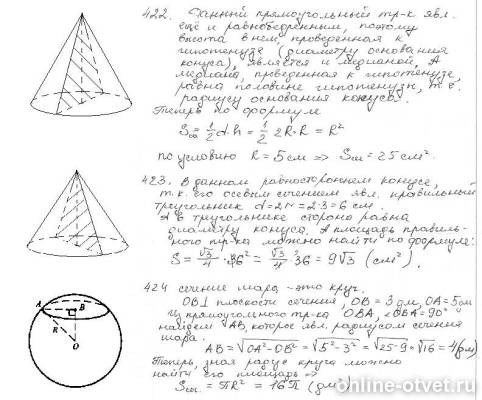 422. Данный прямоугольный тр-к явл.
ещё и равнобедренным, поэтому
высота в нем, проведенная к
гипотенузе (диаметру основания
конуса), является и медианой. А
медиана, проведенная к гипотенузе,
равна половине гипотенузы, т.е.
радиусу основания конуса.
Теперь по формуле
S = 1/2 d·h = 1/2 2R·R = R²
по условию R = 5см ⇒ Sсеч = 25 см².
423. В данном равностороннем конусе,
т.к. его осевым сечением явл. правильный
треугольник d=2r=2·3=6 см.
А в треугольнике сторона равна
диаметру конуса. А площадь правиль-
ного тр-ка можно найти по формуле:
S = √3/4 · 6² = √3/4 · 36 = 9√3 (см²).
424 сечение шара - это круг.
OB⊥ плоскости сечения, OB = 3 дм, OA = 5дм
Из прямоугольного тр-ка OBA, ∠OBA=90°
найдем AB, которое явл. радиусом сечения
шара.
AB = √OA²-OB² = √5²-3² = √25-9 = √16 = 4(дм)
Теперь, зная радус круга можно
найти его площадь ⇒
Sсеч. = πR² = 16π (дм
A
B
R
O
online-otvet.ru